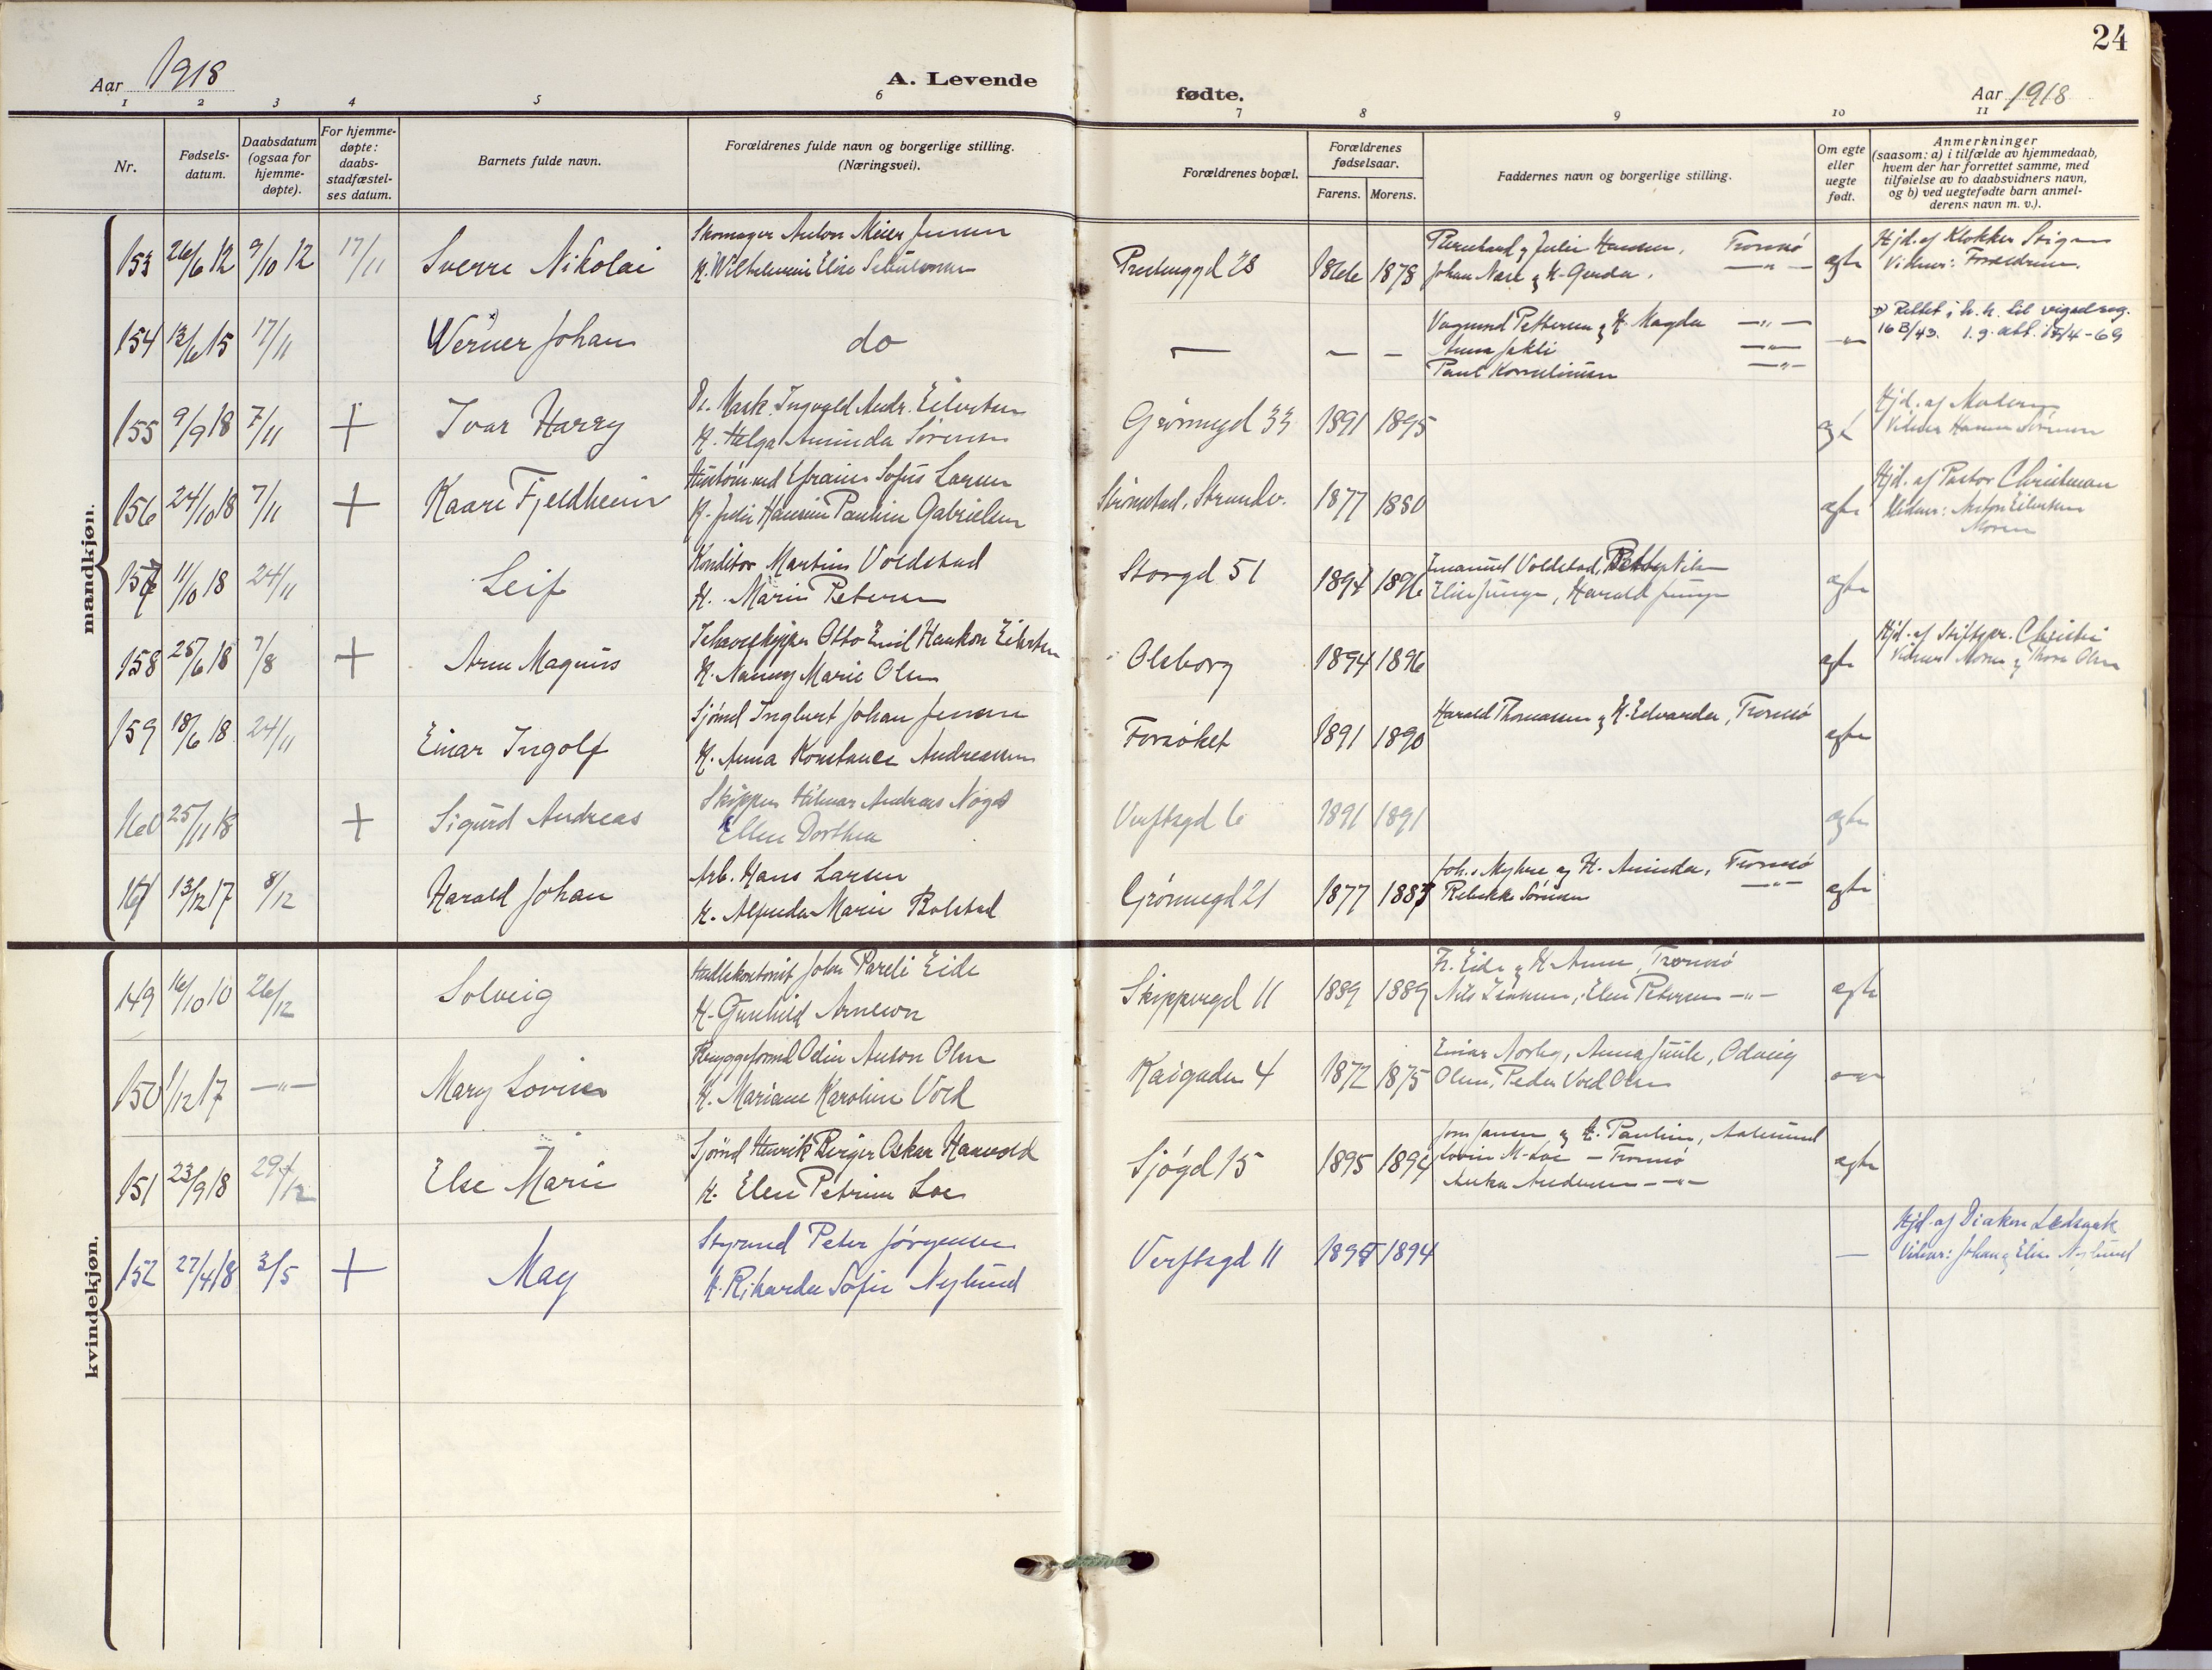 24
Aar 1918
A. Levende
fødte.
Aar 1918
1 2 3 4 5 6 7 8 9 10 11
Nr.
Fødsels-
datum.
Daabsdatum
(ogsaa for
hjemme-
døpte).
For hjemme-
døpte:
daabs-
stadfæstel-
ses datum.
Barnets fulde navn.
Forældrenes fulde navn og borgerlige stilling.
(Næringsvei).
Forældrenes bopæl.
Forældrenes
fødselsaar.
Farens. Morens.
Faddernes navn og borgerlige stilling.
Om egte
eller
uegte
født.
Anmerkninger
(saasom: a) i tilfælde av hjemmedaab,
hvem der har forrettet samme, med
tilføielse av to daabsvidners navn,
og b) ved uegtefødte barn anmel-
derens navn m. v.).
mandkjøn.
153 26/6 12 9/10 12 17/11 Sverre Nikolai
Skomager Anton Meier Jensen
H. Wilhelmine Elise
28 1866 1878
Bernhard og Julie Hansen, Tromsø
Johan og H. Gerda, —„—
egte
Hjd. af Klokker Stigen
Vidner: Forældrene.
154 13/6 15 17/11 Werner Johan
do
— — —
Pettersen og H. Magda —„—
Anna Jakli —„—
Paul Kornelinssen —„—
—„—
Rettet i h. h. til vigselreg.
16 B/43. 1.g. att. 15/4-69
155 9/9 18 7/11 + Ivar Harry
Ingvald Andr. Eilertsen
H. Helga Aminda Sørensen
Grønnegd 33 1891 1895
egt
Hjd. af Moderen
Vidner Hanna Sørensen
156 24/10 18 7/11 + Kaare Fjeldheim
Efraim Sofus Larsen
H. Julie Hansine Pauline Gabrielsen
Strømstad, Strandv. 1877 1880
egte
Hjd. af Pastor Christensen
Vidner: Anton Eilertsen
Moren
157 11/10 18 24/11 Leif
Konditor Martin Voldstad
H. Marie Petersen
Storgd 51 1894 1896
Emanuel Voldstad, Betty Nilsen
Elise Junge, Harald Junge
egte
158 25/6 18 7/8 + Arne Magnus
Otto Emil Haakon Eilertsen
H. Nanny Marie Olsen
Olsborg 1894 1896
egte
Hjd. af Stiftspr. Christie
Vidner Moren og Thora Olsen
159 18/6 18 24/11 Einar Ingolf
Sjømd Ingbert Johan Jensen
H. Anna Konstance Andreassen
Forsøket 1891 1890
Harald Thomassen og H. Edvarda, Tromsø
egte
160 25/11 18 + Sigurd Andreas
Skipper Hilmar Andreas
Ellen Dorthea
Verftsgd 6 1891 1891
egte
161 13/12 17 8/12 Harald Johan
Arb. Hans Larsen
H. Alfrida Marie Bolstad
Grønnegd 21 1877 1883
Joh. Myhre og H. Aminda, Tromsø
Rebekka Sørensen —„—
egte
kvindekjøn.
149 16/10 10 26/12 Solveig
Johan Pareli Eide
H. Gunhild Arneson
Skippergd 11 1889 1889
Fr. Eide og H. Anna, Tromsø
Nils Isaksen, Elen Petersen —„—
egte
150 1/12 17 —„— Mary Lovise
Bryggeformd Odin Anton Olsen
H. Mariane Karoline Vold
Kaigaden 4 1872 1875
Einar Norby, Anna Juule, Odveig
Olsen, Peder Vold Olsen
—„—
151 23/9 18 29/12 Else Marie
Sjømd Henrik Birger Oskar Hanvold
H. Elen Petrine Loe
Sjøgd 15 1895 1894
Jensen og H. Pauline, Aalesund
Lovise M. Loe — Tromsø
Anna Andersen —„—
egte
152 27/4 18 3/5 + May
Styrmd Peter Jørgensen
H. Rikarda Sofie Nylund
Verftsgd 11 1895 1894
—
Hjd. af Diakon Ledsaak
Vidner: Johan og Elise Nylund